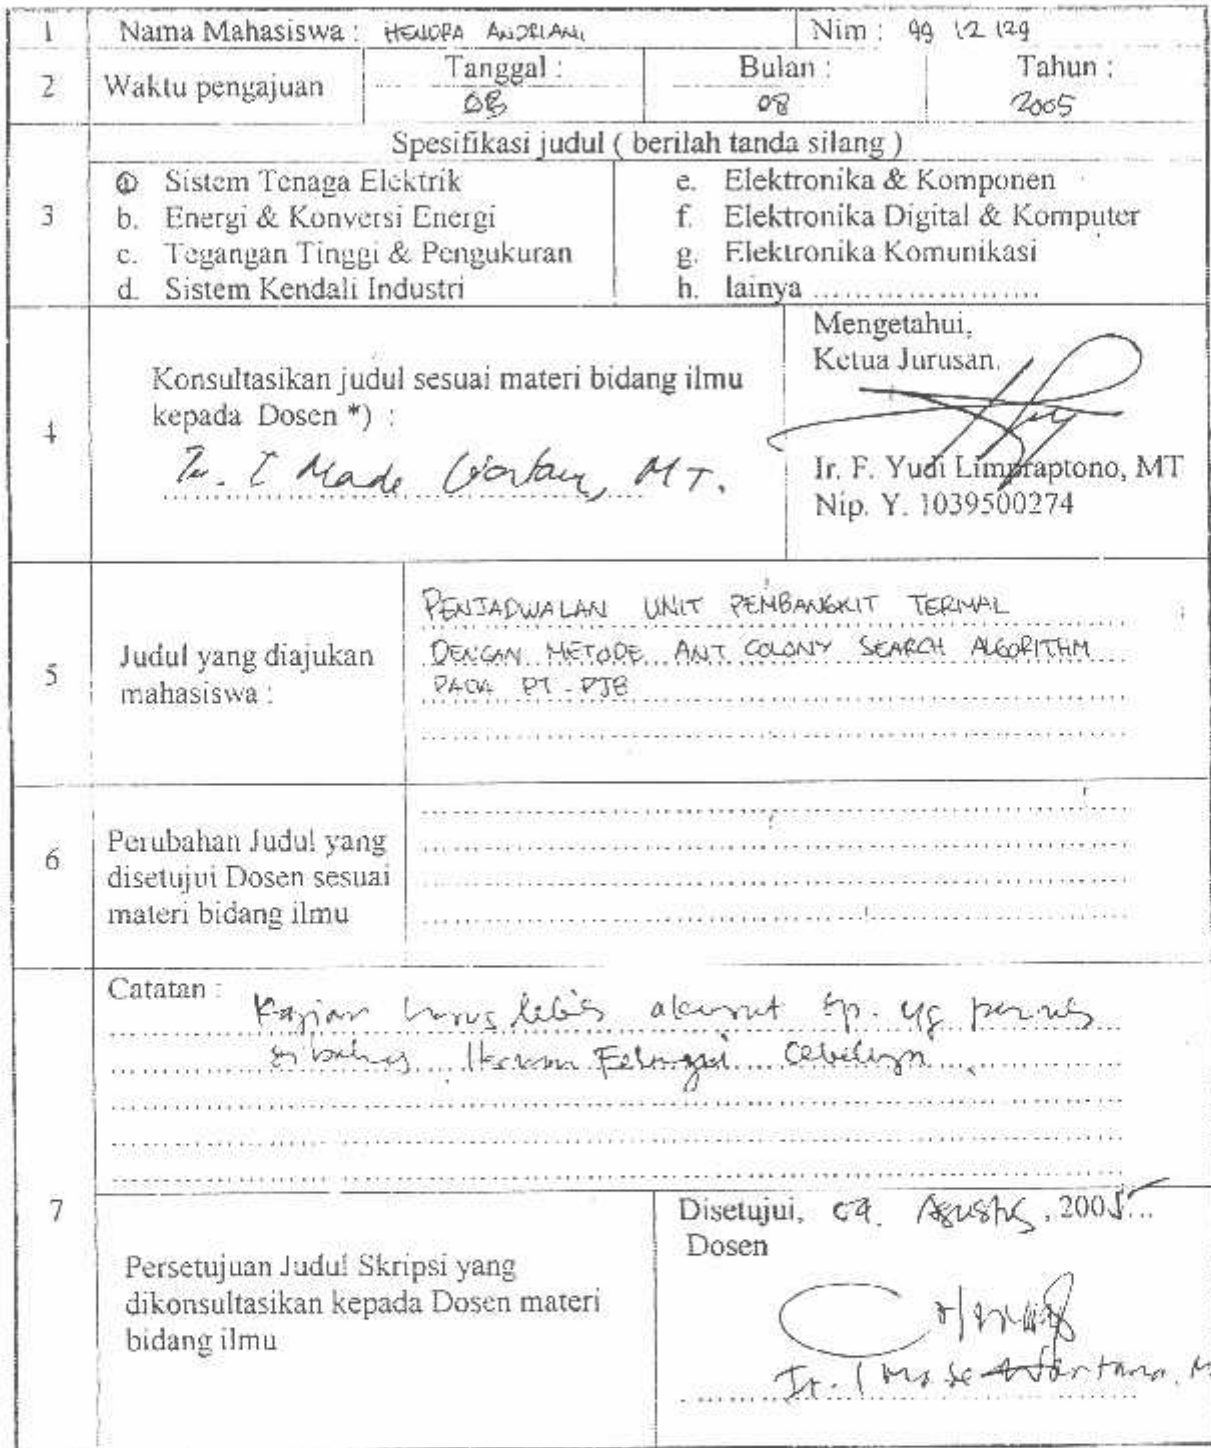 1 Nama Mahasiswa : HENDRA ANDRIANI Nim : 99 12 129
2 Waktu pengajuan Tanggal : 08 Bulan : 08 Tahun : 2005
3 Spesifikasi judul ( berilah tanda silang )
a Sistem Tenaga Elektrik
b. Energi & Konversi Energi
c. Tegangan Tinggi & Pengukuran
d. Sistem Kendali Industri
e. Elektronika & Komponen
f. Elektronika Digital & Komputer
g. Elektronika Komunikasi
h. lainya ......................
4 Konsultasikan judul sesuai materi bidang ilmu
kepada Dosen *) :
Ir. I Made Wartana, MT.
Mengetahui,
Ketua Jurusan.
Ir. F. Yudi Limpraptono, MT
Nip. Y. 1039500274
5 Judul yang diajukan
mahasiswa :
PENJADWALAN UNIT PEMBANGKIT TERMAL
DENGAN METODE ANT COLONY SEARCH ALGORITHM
PADA PT - PJB
6 Perubahan Judul yang
disetujui Dosen sesuai
materi bidang ilmu
7 Catatan :
Kajian harus lebih akurat yg pernah
dibahas
Persetujuan Judul Skripsi yang
dikonsultasikan kepada Dosen materi
bidang ilmu
Disetujui, 09. Agustus, 2005...
Dosen
Ir. I Made Wartana, M